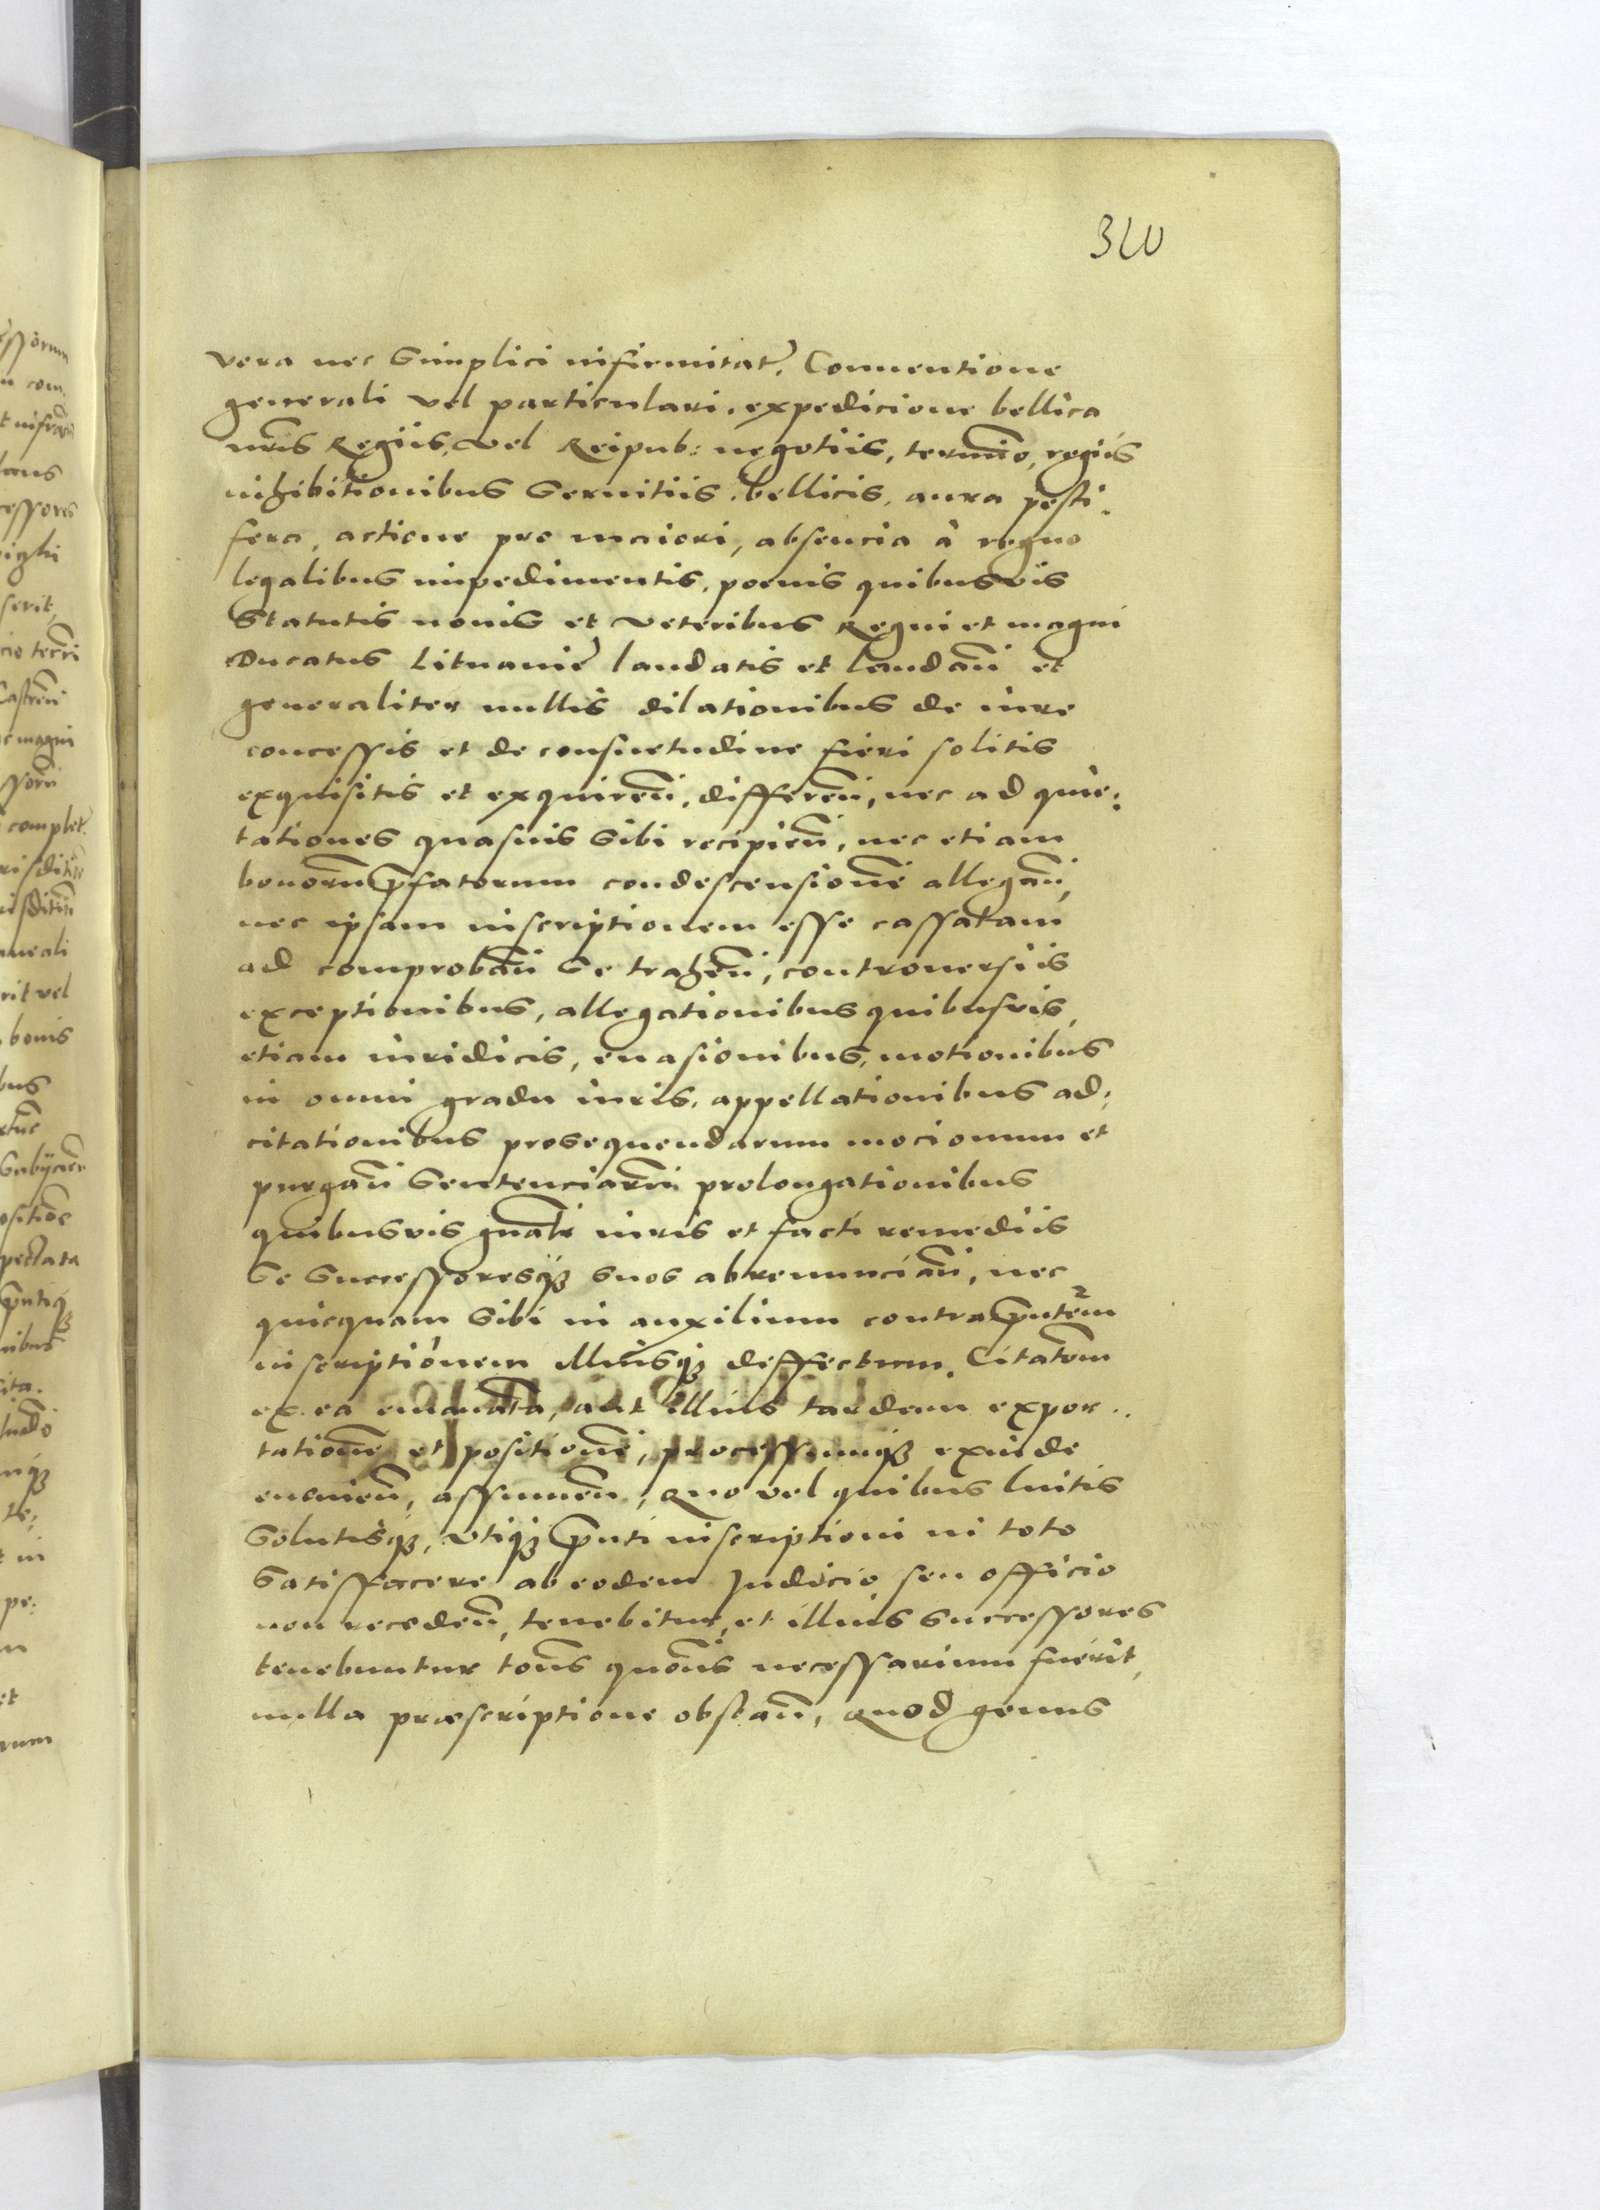 310
vera nec simplici infirmitate, Conventione
generali vel particulari, expedicione bellica
nris Regiis, vel Reipub: negotiis, termino, regiis
inhibitionibus servitiis bellicis, aura pesti:
fera, actione pro maiori, absencia à regno
legalibus impedimentis, poenis quibusvis
Statutis novis et veteribus Regni et magni
Ducatus Lituanię laudatis et laudan et
generaliter nullis dilationibus de iure
concessis et de consuetudine fieri solitis
exquisitis et exquiren, differen, nec ad quie:
tationes quasuis sibi recipien, nec etiam
bonorum prefatorum condescensione allegan,
nec ipsam inscriptionem esse cassatam
ad comproban se trahen, controuersiis
exceptionibus, allegationibus quibusvis,
etiam iuridicis, euasionibus, motionibus
in omni gradu iuris, appellationibus ad:
citationibus prosequendarum mocionum et
purgan Sentenciarum prolongationibus
quibusvis gnalr iuris et facti remediis
se successoresq suos abrenuncian, nec
quicquam sibi in auxilium contra pntem
inscriptionem illiusq deffectum, Citatem
ex ea emanata, aut illius tardem expor:
tatione et positione, processumq exinde
euenien, assumen, quo vel quibus luitis
solutisq, vtiq pnti inscriptioni in toto
satisffacere ab eodem Judicio seu officio
non receden, tenebitur, et illius successores
tenebuntur tons quons necessarium fuerit,
nulla præscriptione obstan, quod genus